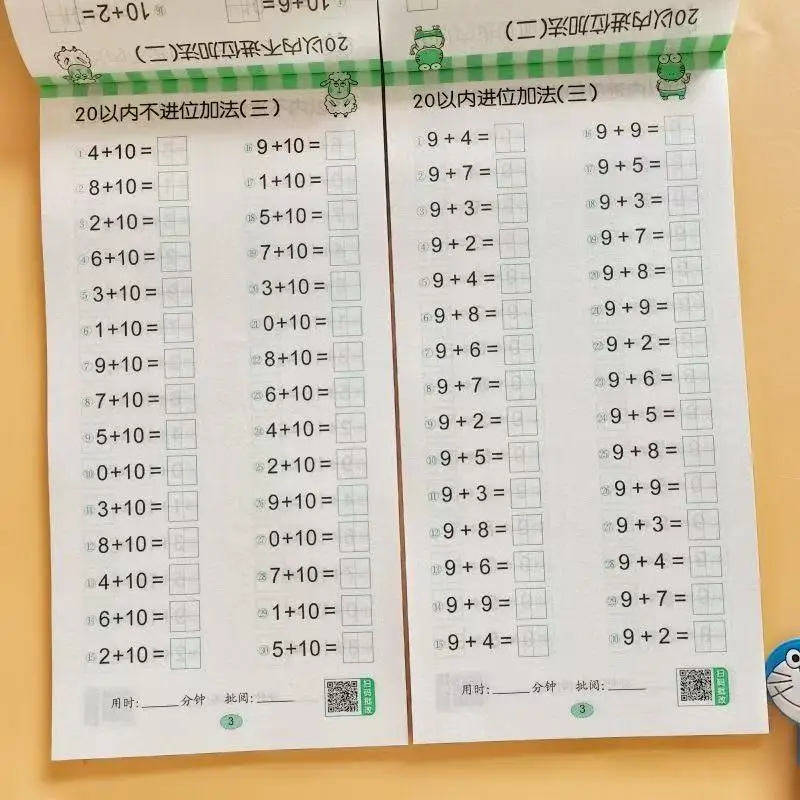 10+2=
⑯ 10+6=
20以内不进位加法(二)
20以内进位加法(二)
20以内不进位加法(三)
① 4+10=
② 8+10=
③ 2+10=
④ 6+10=
⑤ 3+10=
⑥ 1+10=
⑦ 9+10=
⑧ 7+10=
⑨ 5+10=
⑩ 0+10=
⑪ 3+10=
⑫ 8+10=
⑬ 4+10=
⑭ 6+10=
⑮ 2+10=
⑯ 9+10=
⑰ 1+10=
⑱ 5+10=
⑲ 7+10=
⑳ 3+10=
㉑ 0+10=
㉒ 8+10=
㉓ 6+10=
㉔ 4+10=
㉕ 2+10=
㉖ 9+10=
㉗ 0+10=
㉘ 7+10=
㉙ 1+10=
㉚ 5+10=
用时:_____分钟 批阅:_____
扫码批改
3
20以内进位加法(三)
① 9+4=
② 9+7=
③ 9+3=
④ 9+2=
⑤ 9+4=
⑥ 9+8=
⑦ 9+6=
⑧ 9+7=
⑨ 9+2=
⑩ 9+5=
⑪ 9+3=
⑫ 9+8=
⑬ 9+6=
⑭ 9+9=
⑮ 9+4=
⑯ 9+9=
⑰ 9+5=
⑱ 9+3=
⑲ 9+7=
⑳ 9+8=
㉑ 9+9=
㉒ 9+2=
㉓ 9+6=
㉔ 9+5=
㉕ 9+8=
㉖ 9+9=
㉗ 9+3=
㉘ 9+4=
㉙ 9+7=
㉚ 9+2=
用时:_____分钟 批阅:_____
扫码批改
3